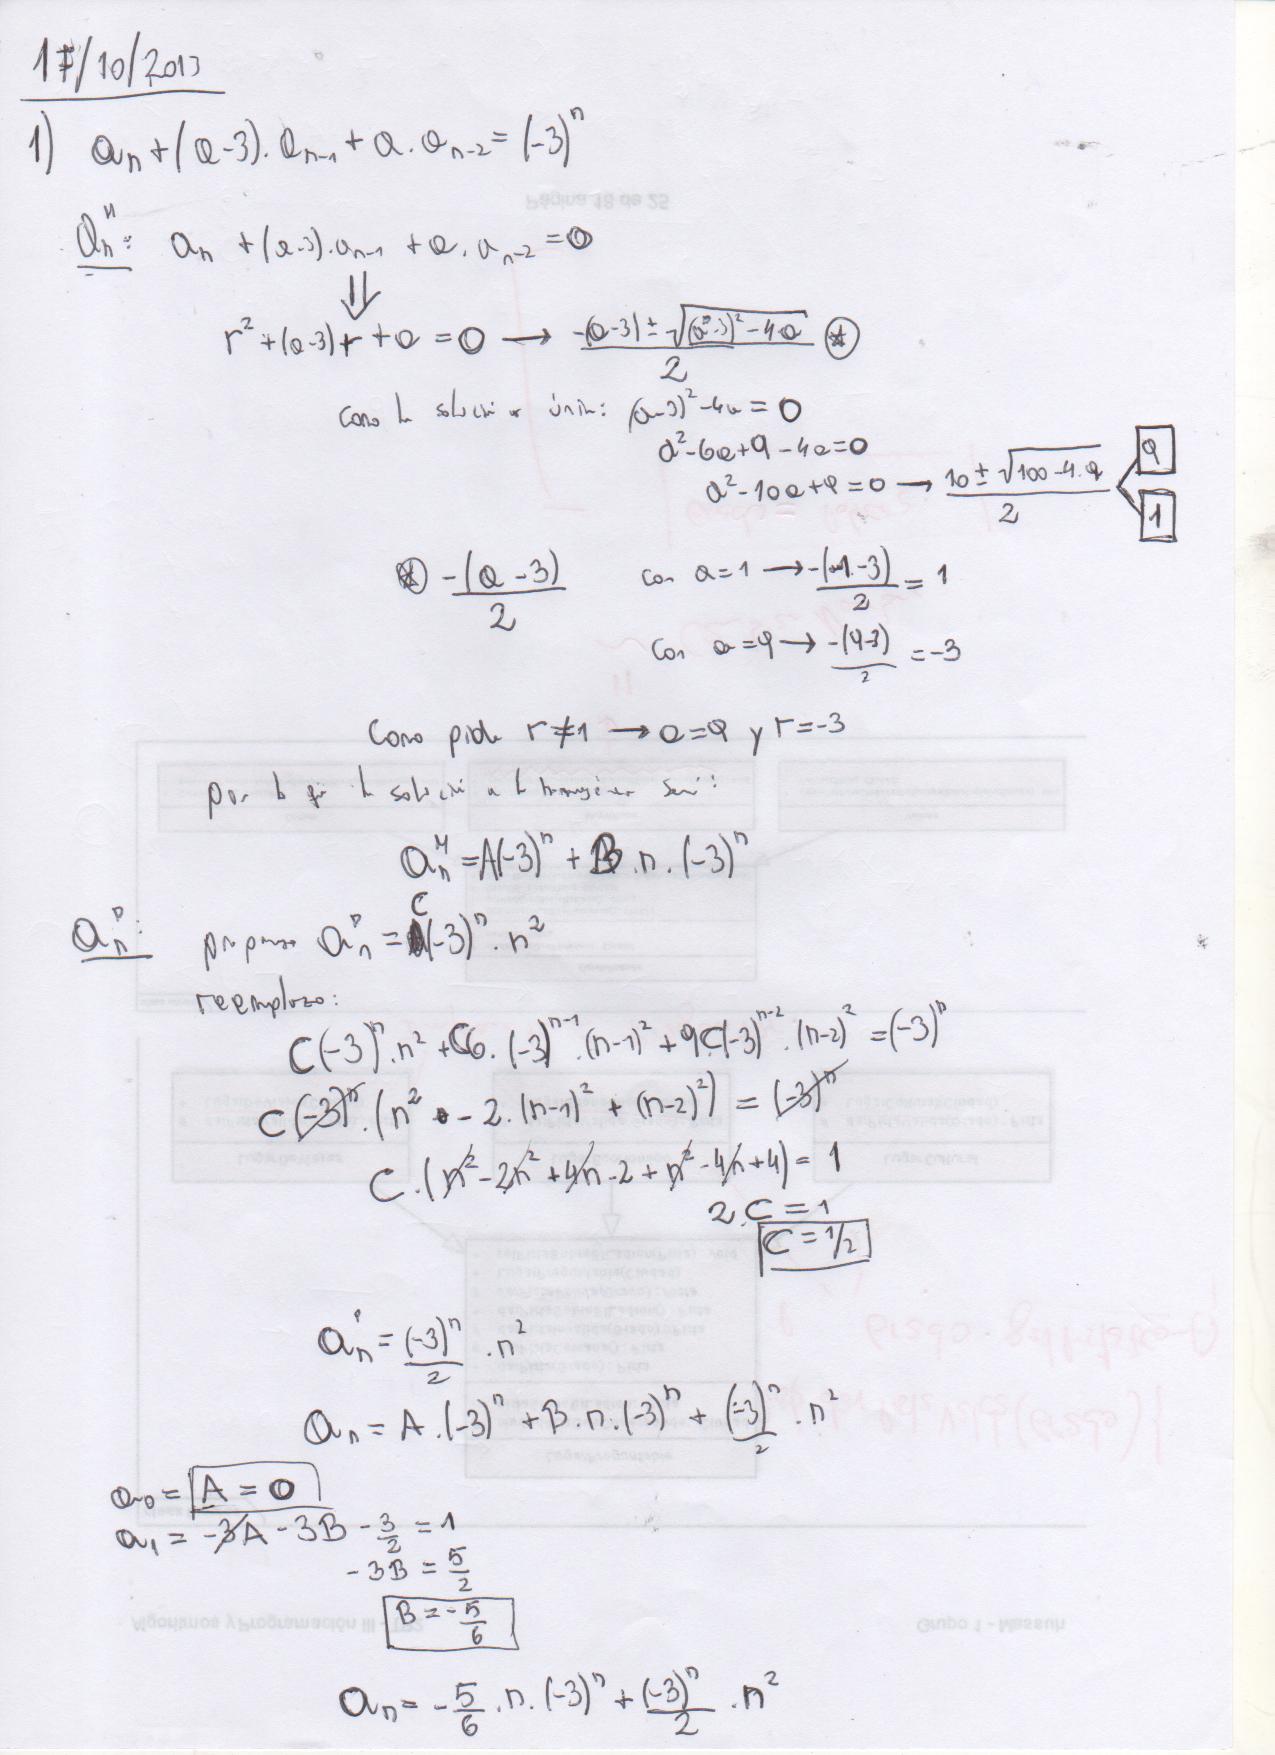 17/10/2013
1) a_n + (a-3).a_{n-1} + a.a_{n-2} = (-3)^n
a_n^H: a_n + (a-3).a_{n-1} + a.a_{n-2} = 0
⇓
r^2 + (a-3)r + a = 0 → \frac{-(a-3) ± √((a-3)^2 - 4a)}{2} ⊛
como la solución es única: (a-3)^2 - 4a = 0
a^2 - 6a + 9 - 4a = 0
a^2 - 10a + 9 = 0 → \frac{10 ± √(100-4.9)}{2} 9 1
⊛ \frac{-(a-3)}{2} con a=1 → \frac{-(1-3)}{2} = 1
con a=9 → \frac{-(9-3)}{2} = -3
Como pide r≠1 → a=9 y r=-3
por lo que la solución a la homogénea será:
a_n^H = A(-3)^n + B.n.(-3)^n
a_n^P: propongo a_n^P = C(-3)^n.n^2
reemplazo:
C(-3)^n.n^2 + C6.(-3)^{n-1}.(n-1)^2 + 9C(-3)^{n-2}.(n-2)^2 = (-3)^n
C(-3)^n.(n^2 - 2.(n-1)^2 + (n-2)^2) = (-3)^n
C.(n^2 - 2n^2 + 4n - 2 + n^2 - 4n + 4) = 1
2.C = 1
C = 1/2
a_n^P = \frac{(-3)^n}{2}.n^2
a_n = A.(-3)^n + B.n.(-3)^n + \frac{(-3)^n}{2}.n^2
a_0 = A = 0
a_1 = -3A - 3B - \frac{3}{2} = 1
-3B = \frac{5}{2}
B = -\frac{5}{6}
a_n = -\frac{5}{6}.n.(-3)^n + \frac{(-3)^n}{2}.n^2